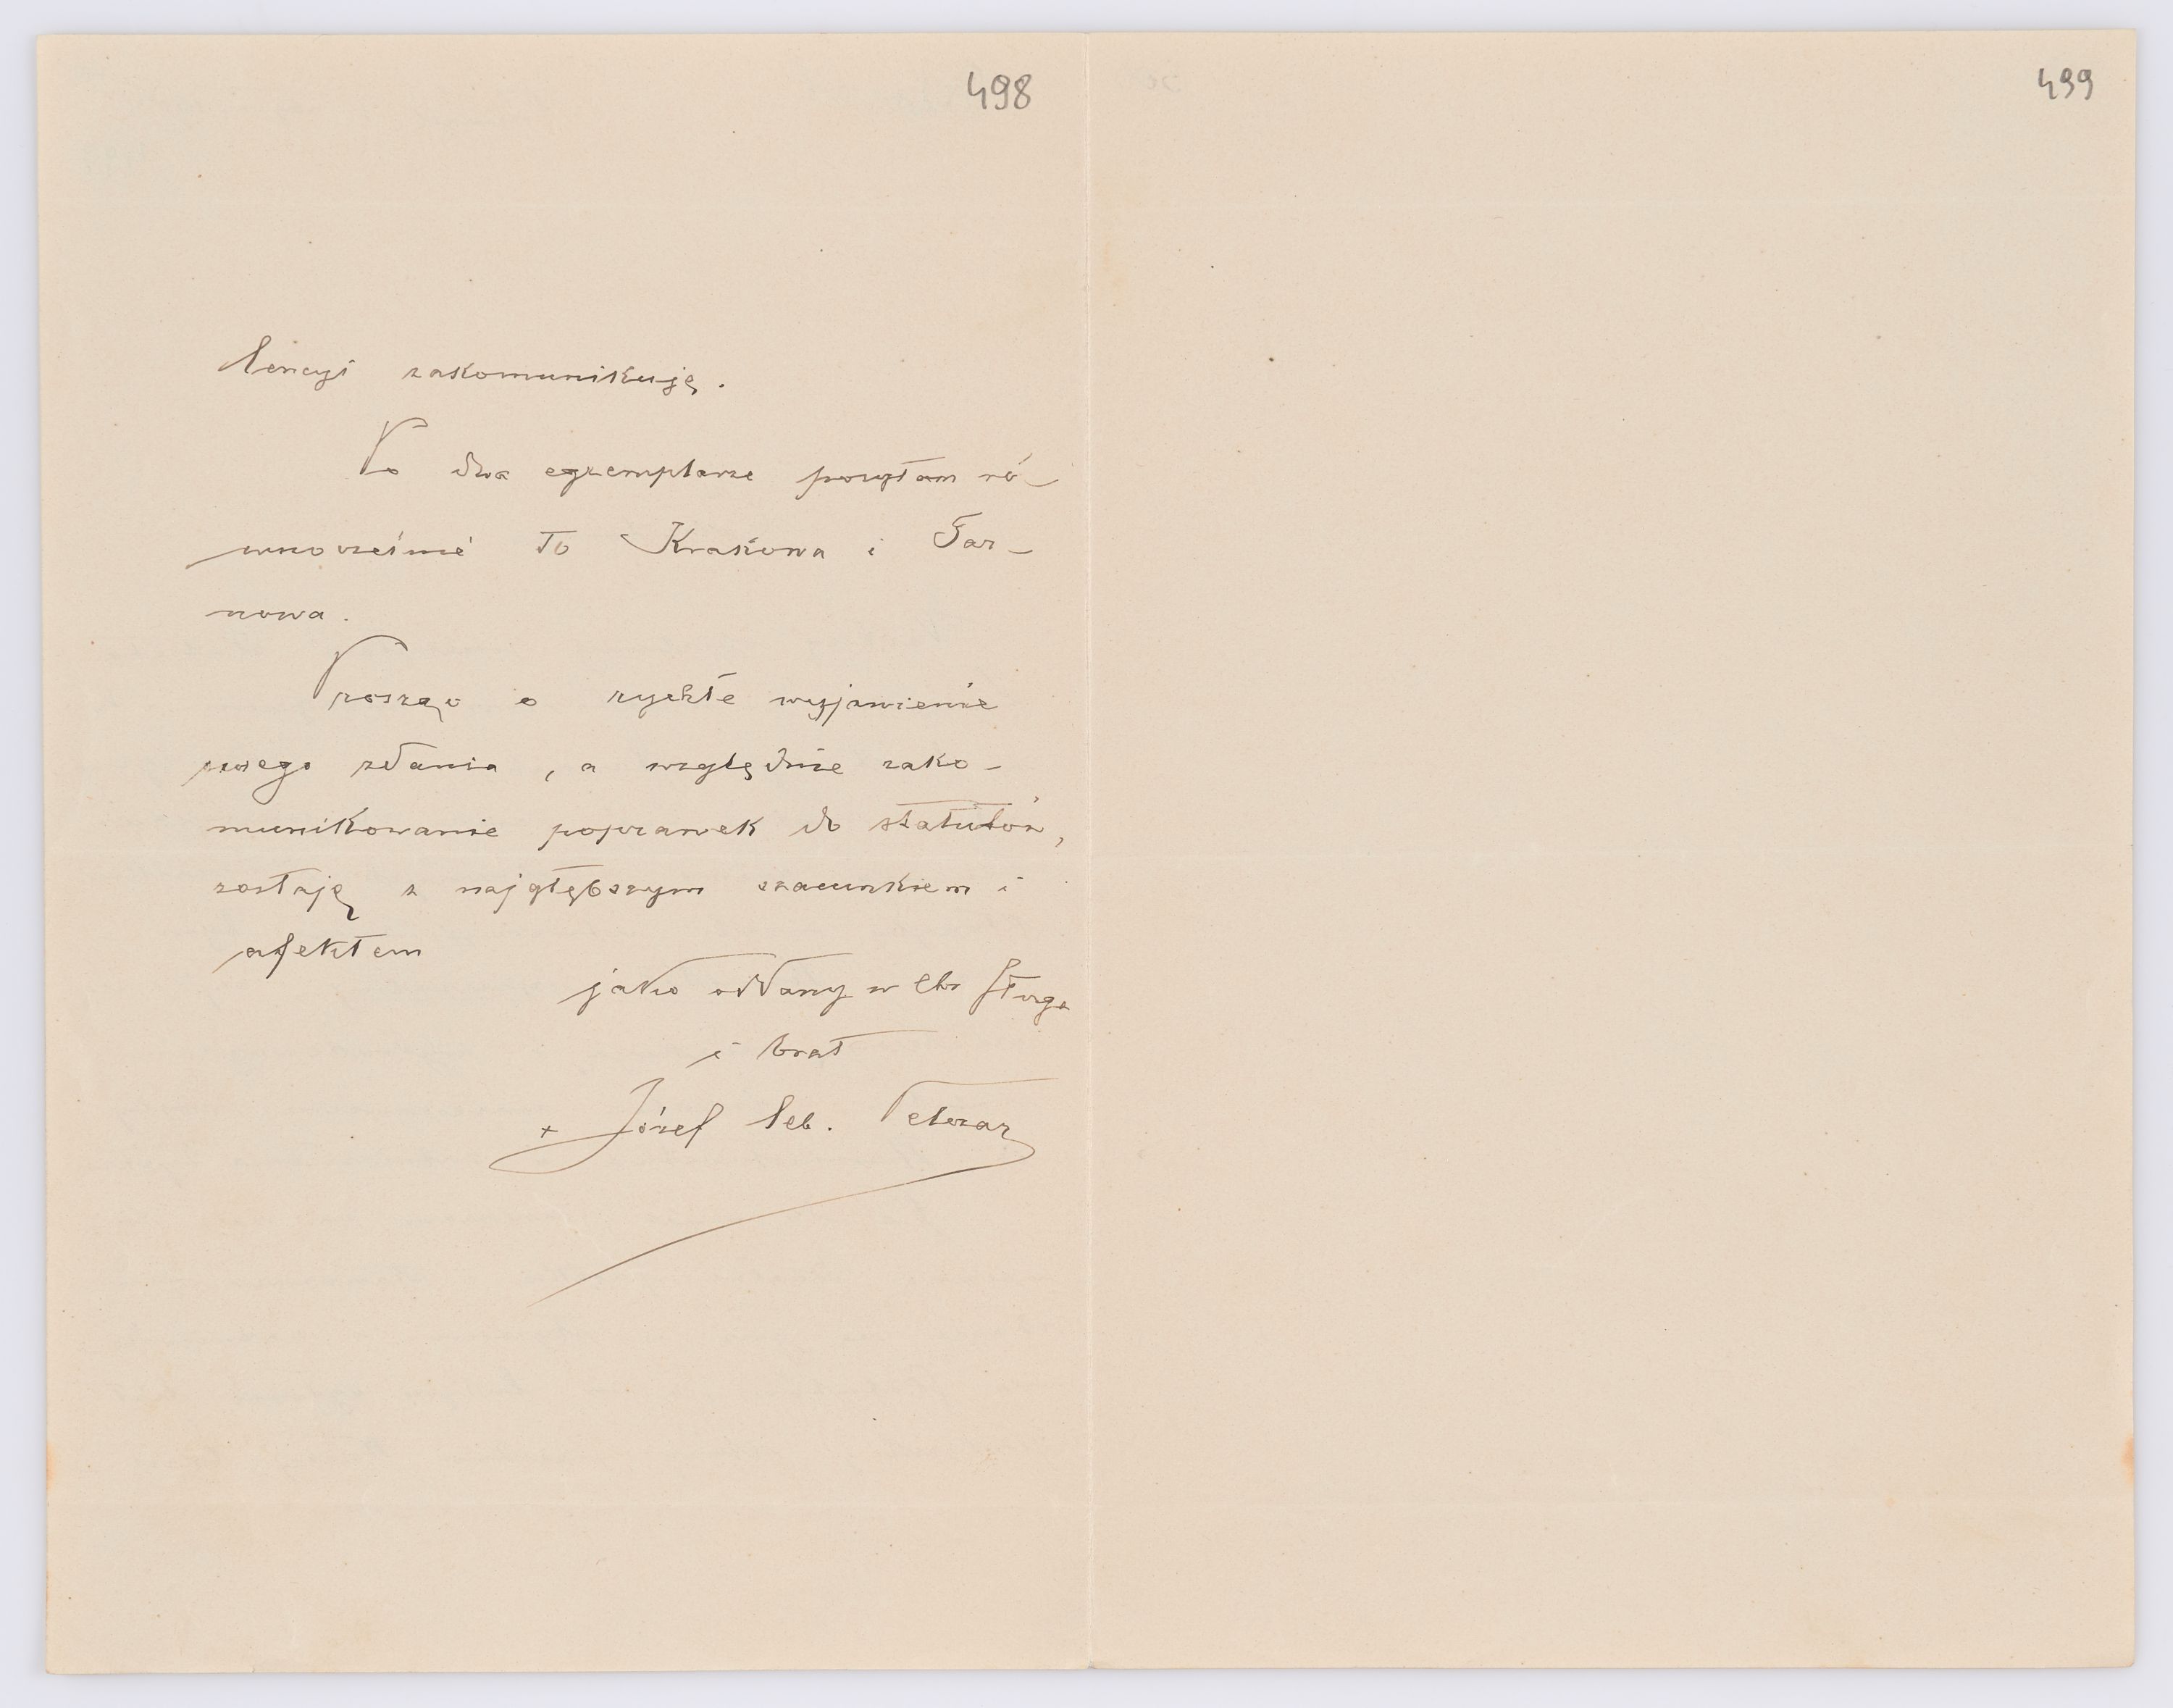 498
lencyi zakomunikuję.
Po dwa egzemplarze posyłam ró-
wnocześnie do Krakowa i Tar-
nowa.
Prosząc o rychłe wyjawienie
swego zdania, a względnie zako-
munikowanie poprawek do statutów,
zostaję z najgłębszym szacunkiem i
afektem
jako oddany w Chr sługa
i brat
+ Józef Seb. Pelczar
499